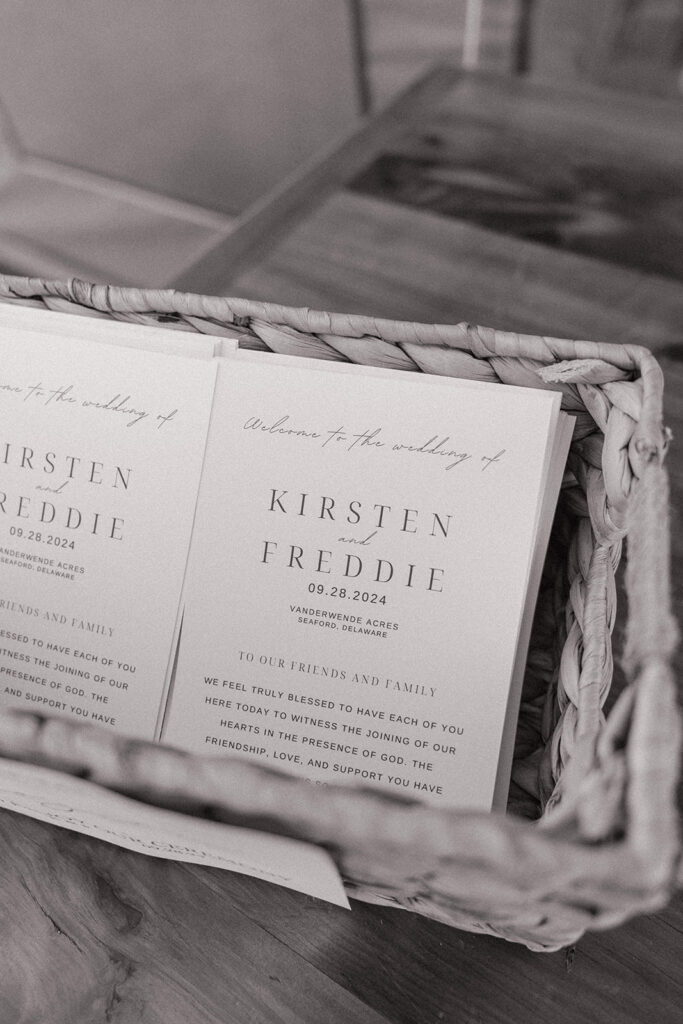 Welcome to the wedding of
KIRSTEN
and
FREDDIE
09.28.2024
VANDERWENDE ACRES
SEAFORD, DELAWARE
TO OUR FRIENDS AND FAMILY
WE FEEL TRULY BLESSED TO HAVE EACH OF YOU
HERE TODAY TO WITNESS THE JOINING OF OUR
HEARTS IN THE PRESENCE OF GOD. THE
FRIENDSHIP, LOVE, AND SUPPORT YOU HAVE
to the wedding of
IRSTEN
and
REDDIE
09.28.2024
ANDERWENDE ACRES
SEAFORD, DELAWARE
FRIENDS AND FAMILY
BLESSED TO HAVE EACH OF YOU
WITNESS THE JOINING OF OUR
PRESENCE OF GOD. THE
AND SUPPORT YOU HAVE